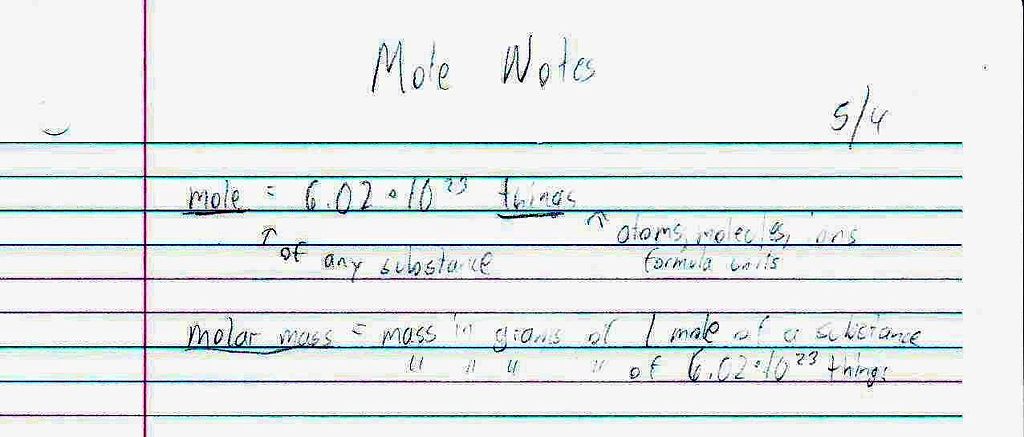 Mole Notes
5/4
mole = 6.02 • 10²³ things
↑ of any substance
↑ atoms, molecules, ions
formula units
molar mass = mass in grams of 1 mole of a substance
" " " " of 6.02•10²³ things